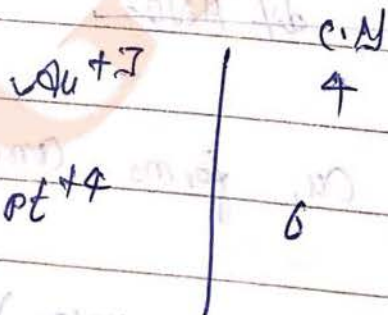 C.N
Au+3 4
pt+4 6